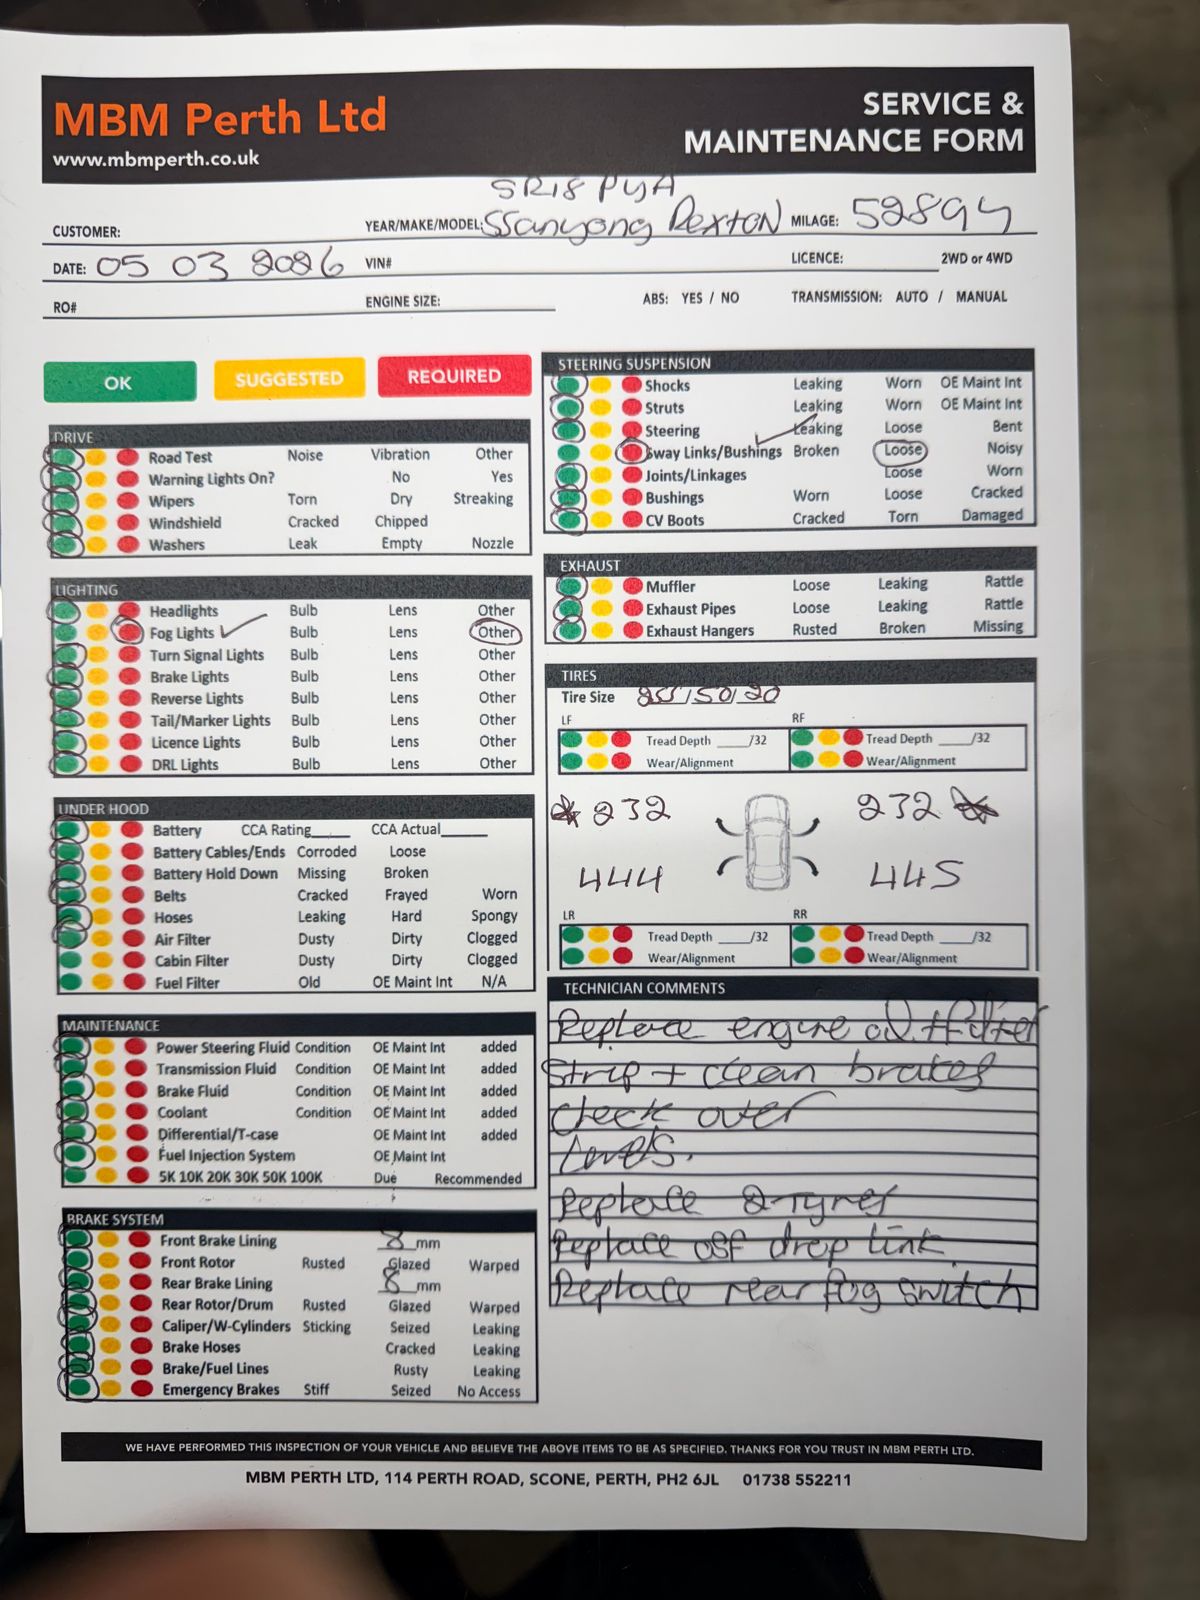 MBM Perth Ltd
www.mbmperth.co.uk
SERVICE &
MAINTENANCE FORM
SR18 PYA
CUSTOMER: YEAR/MAKE/MODEL: SSanyong Rexton MILAGE: 52894
DATE: 05 03 2026 VIN# LICENCE: 2WD or 4WD
RO# ENGINE SIZE: ABS: YES / NO TRANSMISSION: AUTO / MANUAL
OK SUGGESTED REQUIRED
DRIVE
Road Test Noise Vibration Other
Warning Lights On? No Yes
Wipers Torn Dry Streaking
Windshield Cracked Chipped
Washers Leak Empty Nozzle
LIGHTING
Headlights Bulb Lens Other
Fog Lights ✓ Bulb Lens Other
Turn Signal Lights Bulb Lens Other
Brake Lights Bulb Lens Other
Reverse Lights Bulb Lens Other
Tail/Marker Lights Bulb Lens Other
Licence Lights Bulb Lens Other
DRL Lights Bulb Lens Other
UNDER HOOD
Battery CCA Rating____ CCA Actual_____
Battery Cables/Ends Corroded Loose
Battery Hold Down Missing Broken
Belts Cracked Frayed Worn
Hoses Leaking Hard Spongy
Air Filter Dusty Dirty Clogged
Cabin Filter Dusty Dirty Clogged
Fuel Filter Old OE Maint Int N/A
MAINTENANCE
Power Steering Fluid Condition OE Maint Int added
Transmission Fluid Condition OE Maint Int added
Brake Fluid Condition OE Maint Int added
Coolant Condition OE Maint Int added
Differential/T-case OE Maint Int added
Fuel Injection System OE Maint Int
5K 10K 20K 30K 50K 100K Due Recommended
BRAKE SYSTEM
Front Brake Lining 8 mm
Front Rotor Rusted Glazed Warped
Rear Brake Lining 8 mm
Rear Rotor/Drum Rusted Glazed Warped
Caliper/W-Cylinders Sticking Seized Leaking
Brake Hoses Cracked Leaking
Brake/Fuel Lines Rusty Leaking
Emergency Brakes Stiff Seized No Access
STEERING SUSPENSION
Shocks Leaking Worn OE Maint Int
Struts Leaking Worn OE Maint Int
Steering Leaking Loose Bent
Sway Links/Bushings ✓ Broken Loose Noisy
Joints/Linkages Loose Worn
Bushings Worn Loose Cracked
CV Boots Cracked Torn Damaged
EXHAUST
Muffler Loose Leaking Rattle
Exhaust Pipes Loose Leaking Rattle
Exhaust Hangers Rusted Broken Missing
TIRES
Tire Size 255/50/20
LF RF
Tread Depth ____/32 Tread Depth ____/32
Wear/Alignment Wear/Alignment
* 232 232 *
444 445
LR RR
Tread Depth ____/32 Tread Depth ____/32
Wear/Alignment Wear/Alignment
TECHNICIAN COMMENTS
Replace engine oil + filter
Strip + clean brakes
Check over
Levels.
Replace 2 Tyres
Replace osf drop link.
Replace rear fog switch
WE HAVE PERFORMED THIS INSPECTION OF YOUR VEHICLE AND BELIEVE THE ABOVE ITEMS TO BE AS SPECIFIED. THANKS FOR YOU TRUST IN MBM PERTH LTD.
MBM PERTH LTD, 114 PERTH ROAD, SCONE, PERTH, PH2 6JL 01738 552211